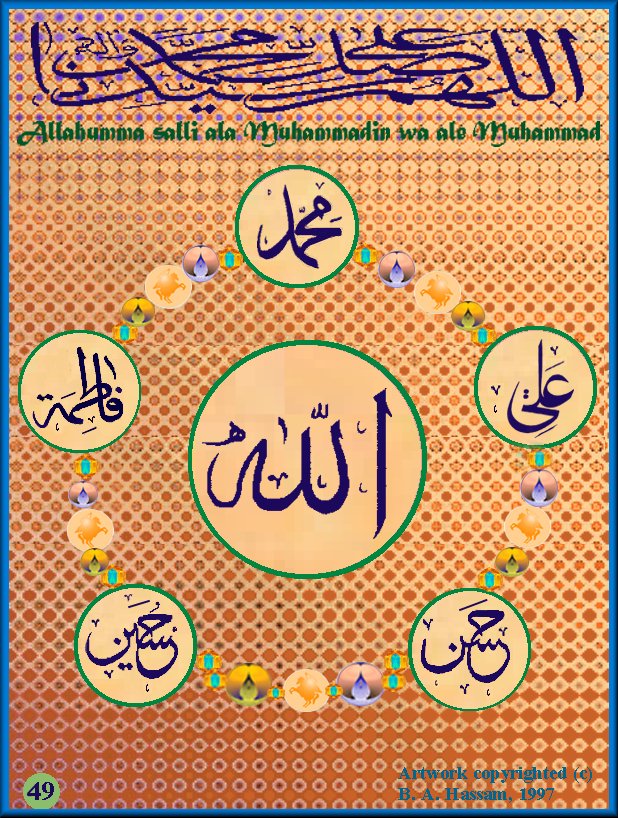 اللهم صل على سيدنا محمد
Allahumma salli ala Muhammadin wa ale Muhammad
مُحَمَّد
فاطِمَة
عَلِيّ
اللّٰه
حُسَين
حَسَن
Artwork copyrighted (c)
B. A. Hassam, 1997
49